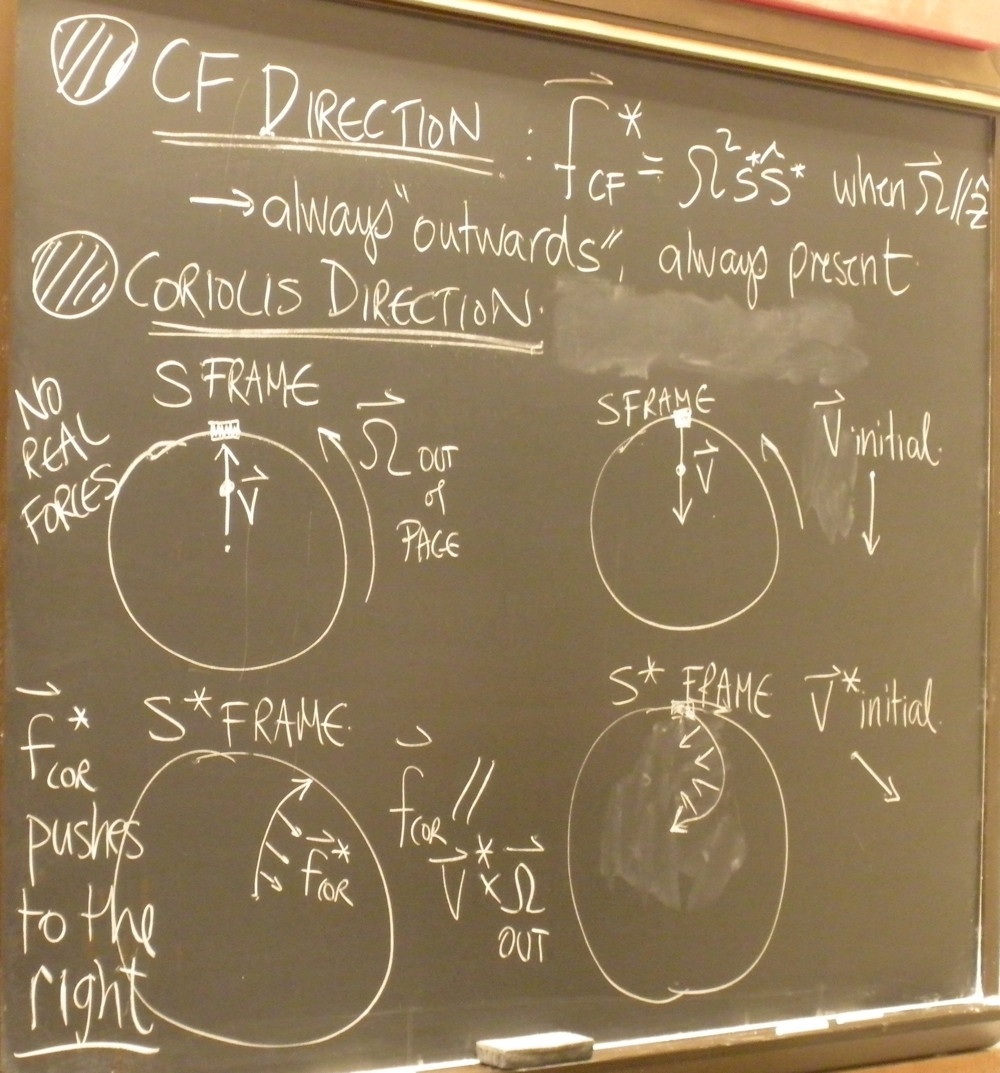 CF DIRECTION : f⃗*CF = Ω² s* ŝ* when Ω⃗ // ẑ
→ always "outwards", always present.
CORIOLIS DIRECTION.
NO
REAL
FORCES
S FRAME
V⃗
Ω⃗ OUT
of
PAGE
S FRAME
V⃗
V⃗ initial.
f⃗*COR
pushes
to the
right
S* FRAME.
f⃗*COR
f⃗COR //
V⃗* × Ω⃗
OUT
S* FRAME
V⃗* initial.